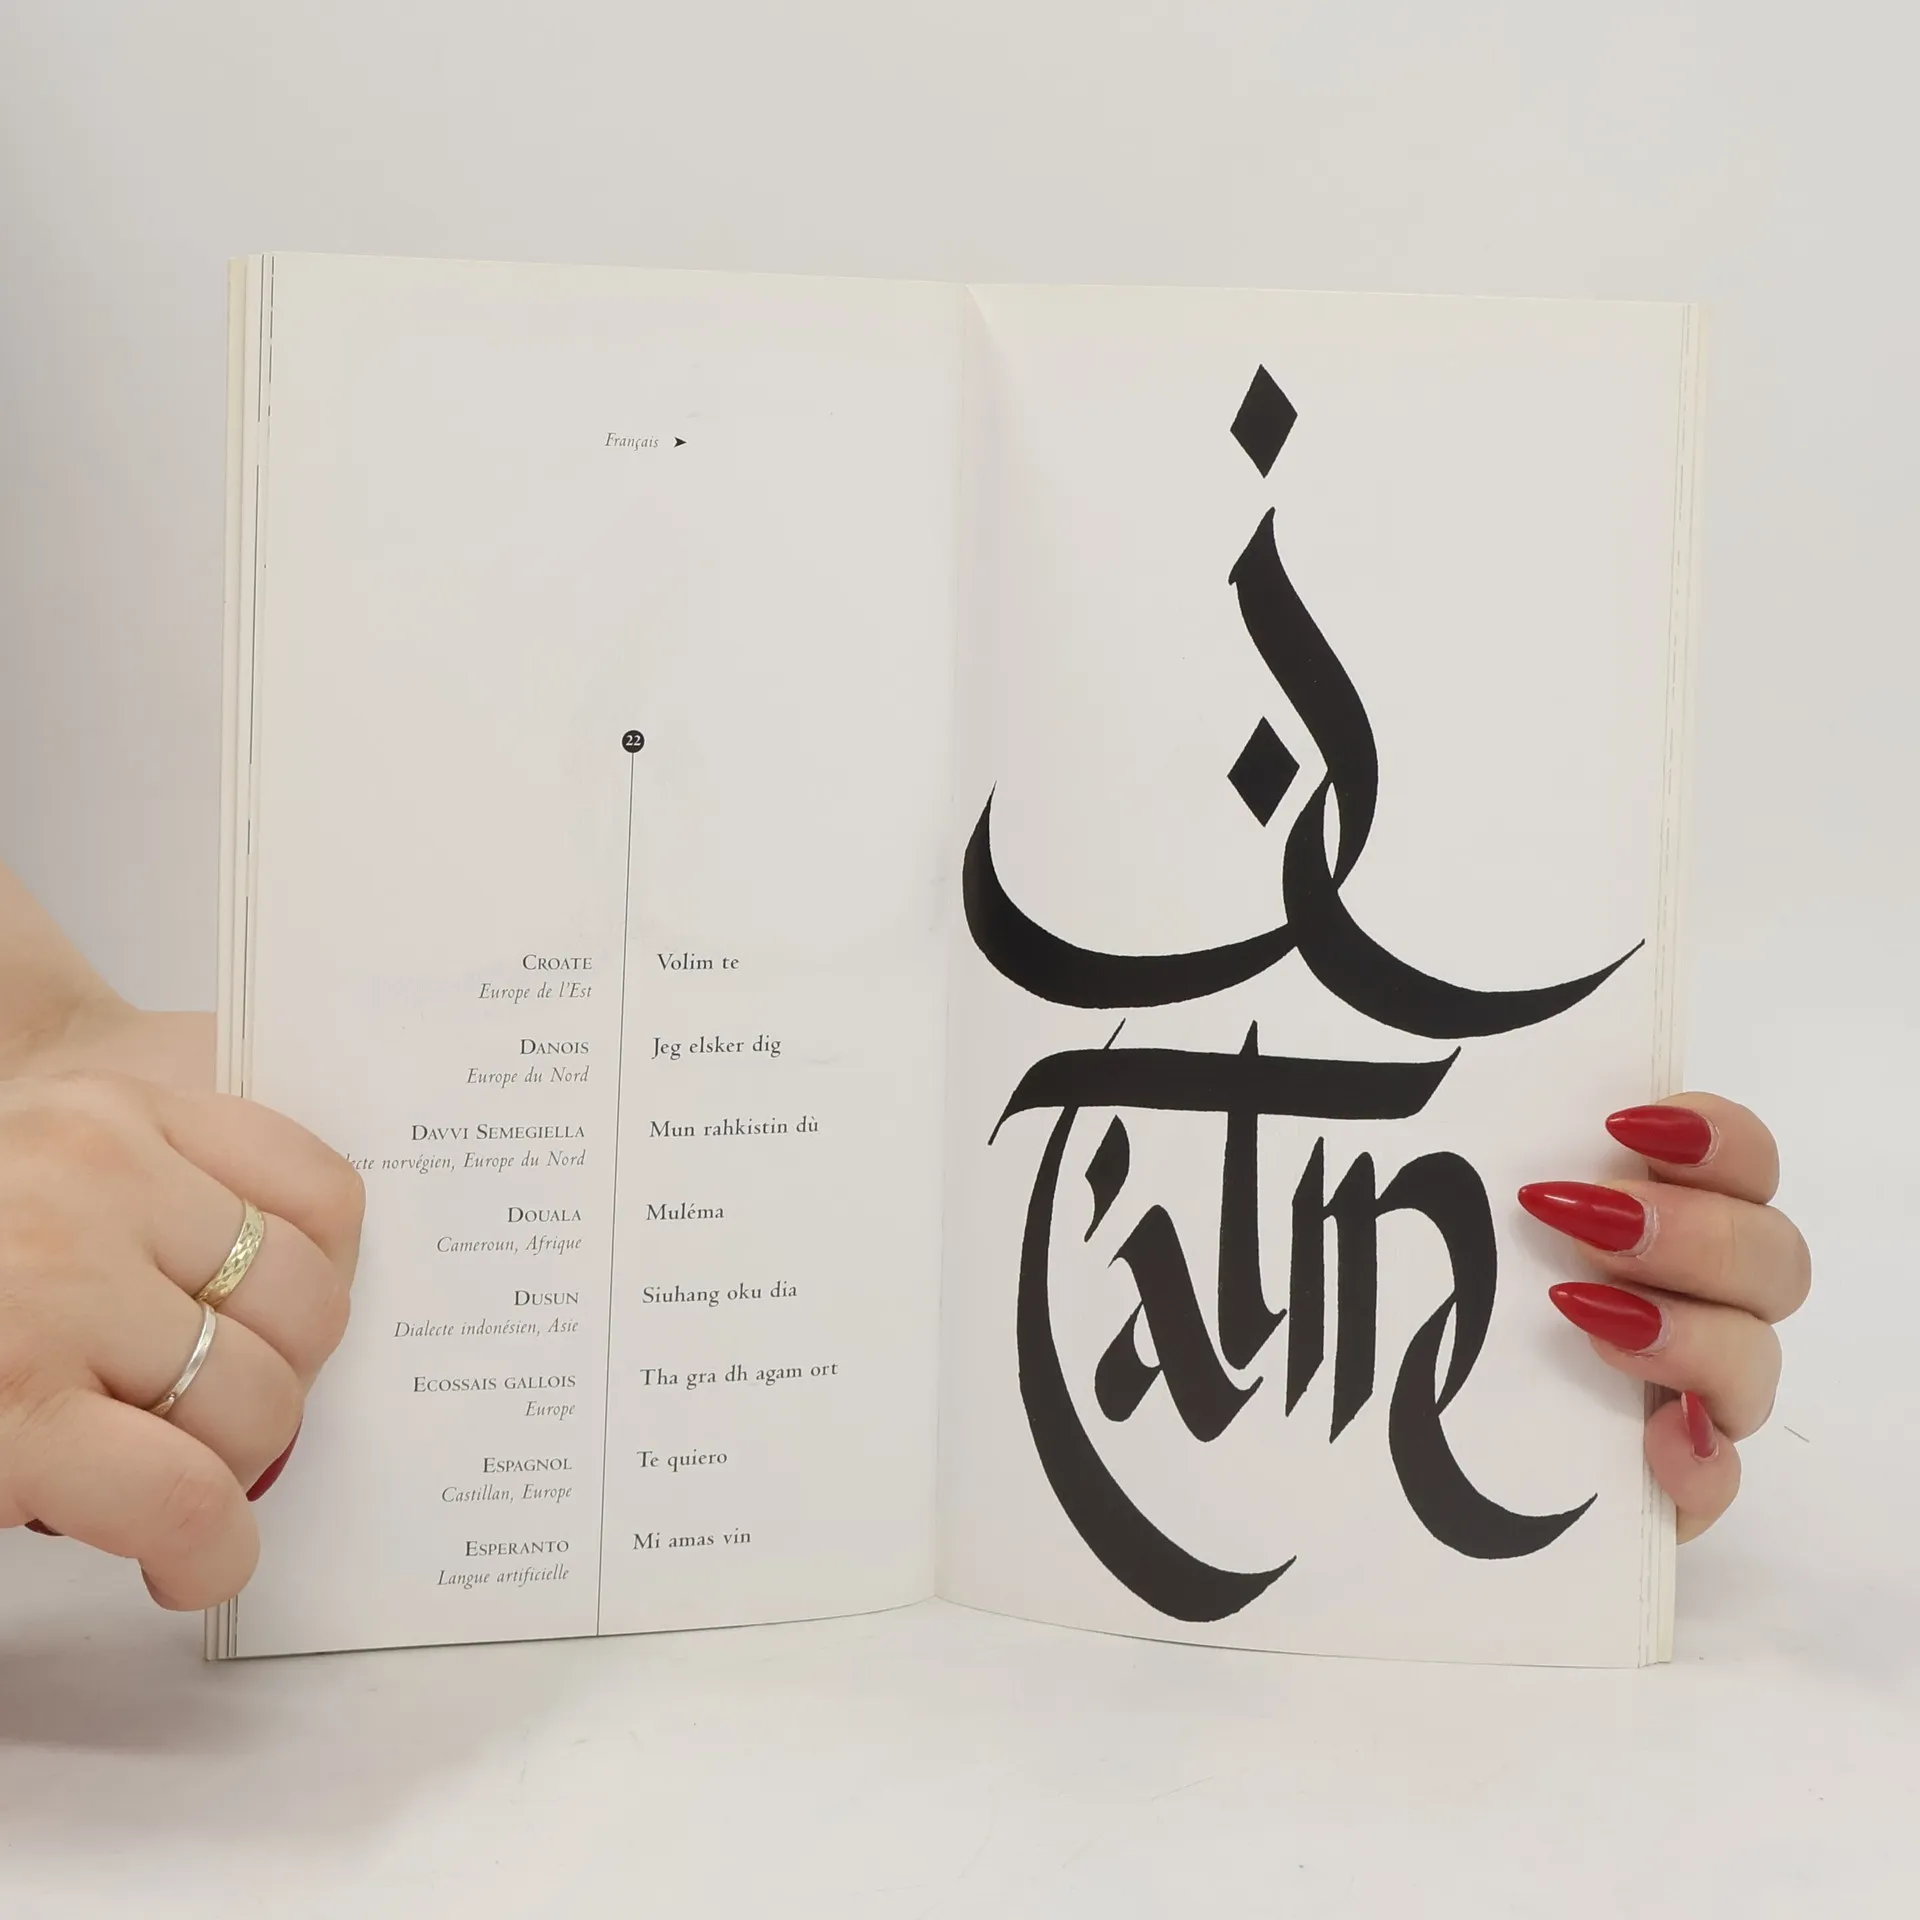 Français
22
CROATE Volim te
Europe de l'Est
DANOIS Jeg elsker dig
Europe du Nord
DAVVI SEMEGIELLA Mun rahkistin dù
norvégien, Europe du Nord
DOUALA Muléma
Cameroun, Afrique
DUSUN Siuhang oku dia
Dialecte indonésien, Asie
ECOSSAIS GALLOIS Tha gra dh agam ort
Europe
ESPAGNOL Te quiero
Castillan, Europe
ESPERANTO Mi amas vin
Langue artificielle
Je
t'aime